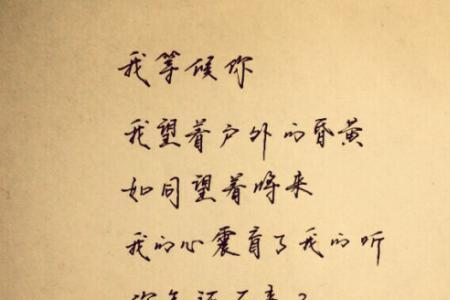 我等候你
我望着户外的昏黄
如同望着将来
我的心震盲了我的听
你怎还不来？